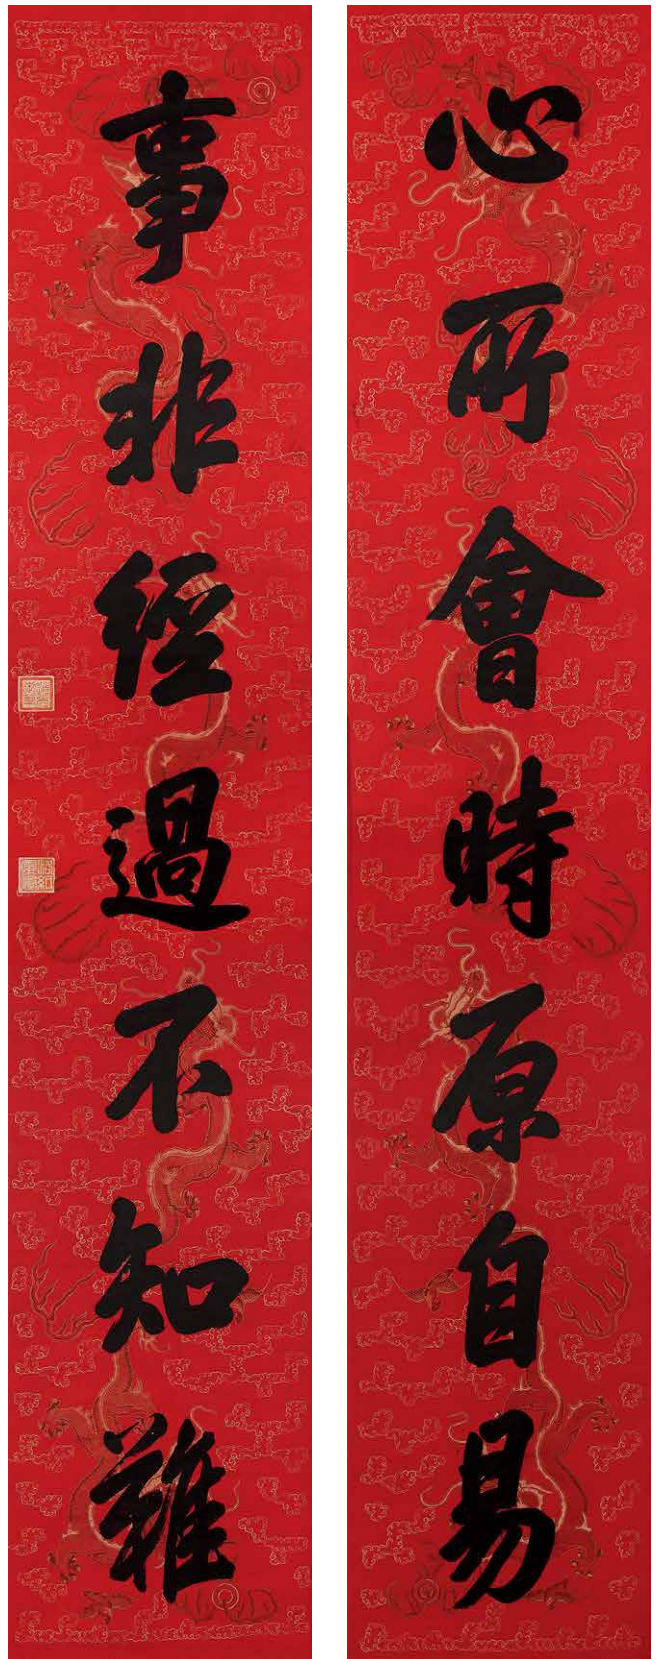 心所會時原自易
事非經過不知難